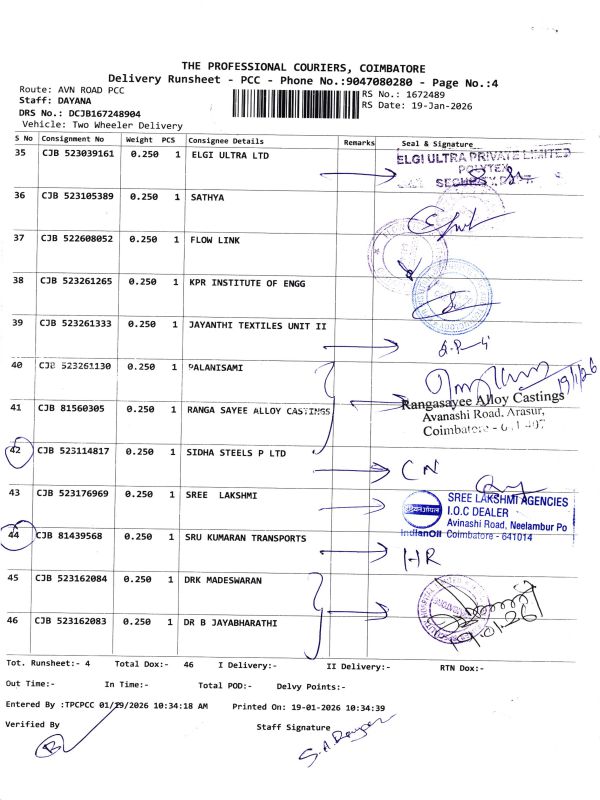 THE PROFESSIONAL COURIERS, COIMBATORE
Delivery Runsheet - PCC - Phone No.:9047080280 - Page No.:4
Route: AVN ROAD PCC
RS No.: 1672489
Staff: DAYANA
RS Date: 19-Jan-2026
DRS No.: DCJB167248904
Vehicle: Two Wheeler Delivery
S No Consignment No Weight PCS Consignee Details Remarks Seal & Signature
35 CJB 523039161 0.250 1 ELGI ULTRA LTD
ELGI ULTRA PRIVATE LIMITED
POLYTEX
SECURITY
36 CJB 523105389 0.250 1 SATHYA
37 CJB 522608052 0.250 1 FLOW LINK
38 CJB 523261265 0.250 1 KPR INSTITUTE OF ENGG
39 CJB 523261333 0.250 1 JAYANTHI TEXTILES UNIT II
40 CJB 523261130 0.250 1 PALANISAMI
19/1/26
41 CJB 81560305 0.250 1 RANGA SAYEE ALLOY CASTINGS
Rangasayee Alloy Castings
Avanashi Road, Arasur,
Coimbatore - 641 407
42 CJB 523114817 0.250 1 SIDHA STEELS P LTD
CN
43 CJB 523176969 0.250 1 SREE LAKSHMI
SREE LAKSHMI AGENCIES
I.O.C DEALER
Avinashi Road, Neelambur Po
Coimbatore - 641014
इंडियनऑयल
IndianOil
44 CJB 81439568 0.250 1 SRU KUMARAN TRANSPORTS
HR
45 CJB 523162084 0.250 1 DRK MADESWARAN
46 CJB 523162083 0.250 1 DR B JAYABHARATHI
19.01.26
Tot. Runsheet:- 4 Total Dox:- 46 I Delivery:- II Delivery:- RTN Dox:-
Out Time:- In Time:- Total POD:- Delvy Points:-
Entered By :TPCPCC 01/19/2026 10:34:18 AM Printed On: 19-01-2026 10:34:39
Verified By Staff Signature